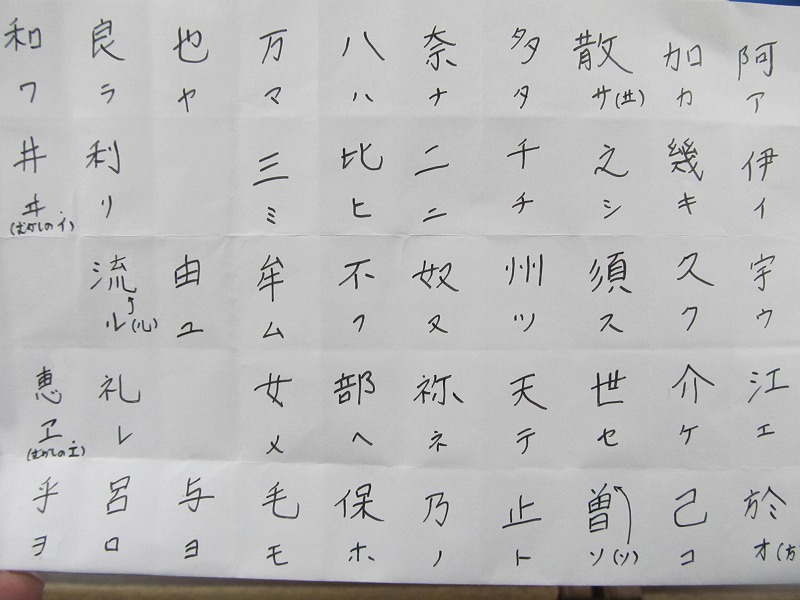 和 良 也 万 八 奈 多 散 加 阿
ワ ラ ヤ マ ハ ナ タ サ(廾) カ ア
井 利 三 比 二 千 之 幾 伊
ヰ(むかしのイ) リ ミ ヒ ニ チ シ キ イ
流 由 牟 不 奴 州 須 久 宇
ル(ル) ユ ム フ ヌ ツ ス ク ウ
恵 礼 女 部 祢 天 世 介 江
ヱ(むかしのエ) レ メ ヘ ネ テ セ ケ エ
乎 呂 与 毛 保 乃 止 曽 己 於
ヲ ロ ヨ モ ホ ノ ト ソ(ソ) コ オ(方